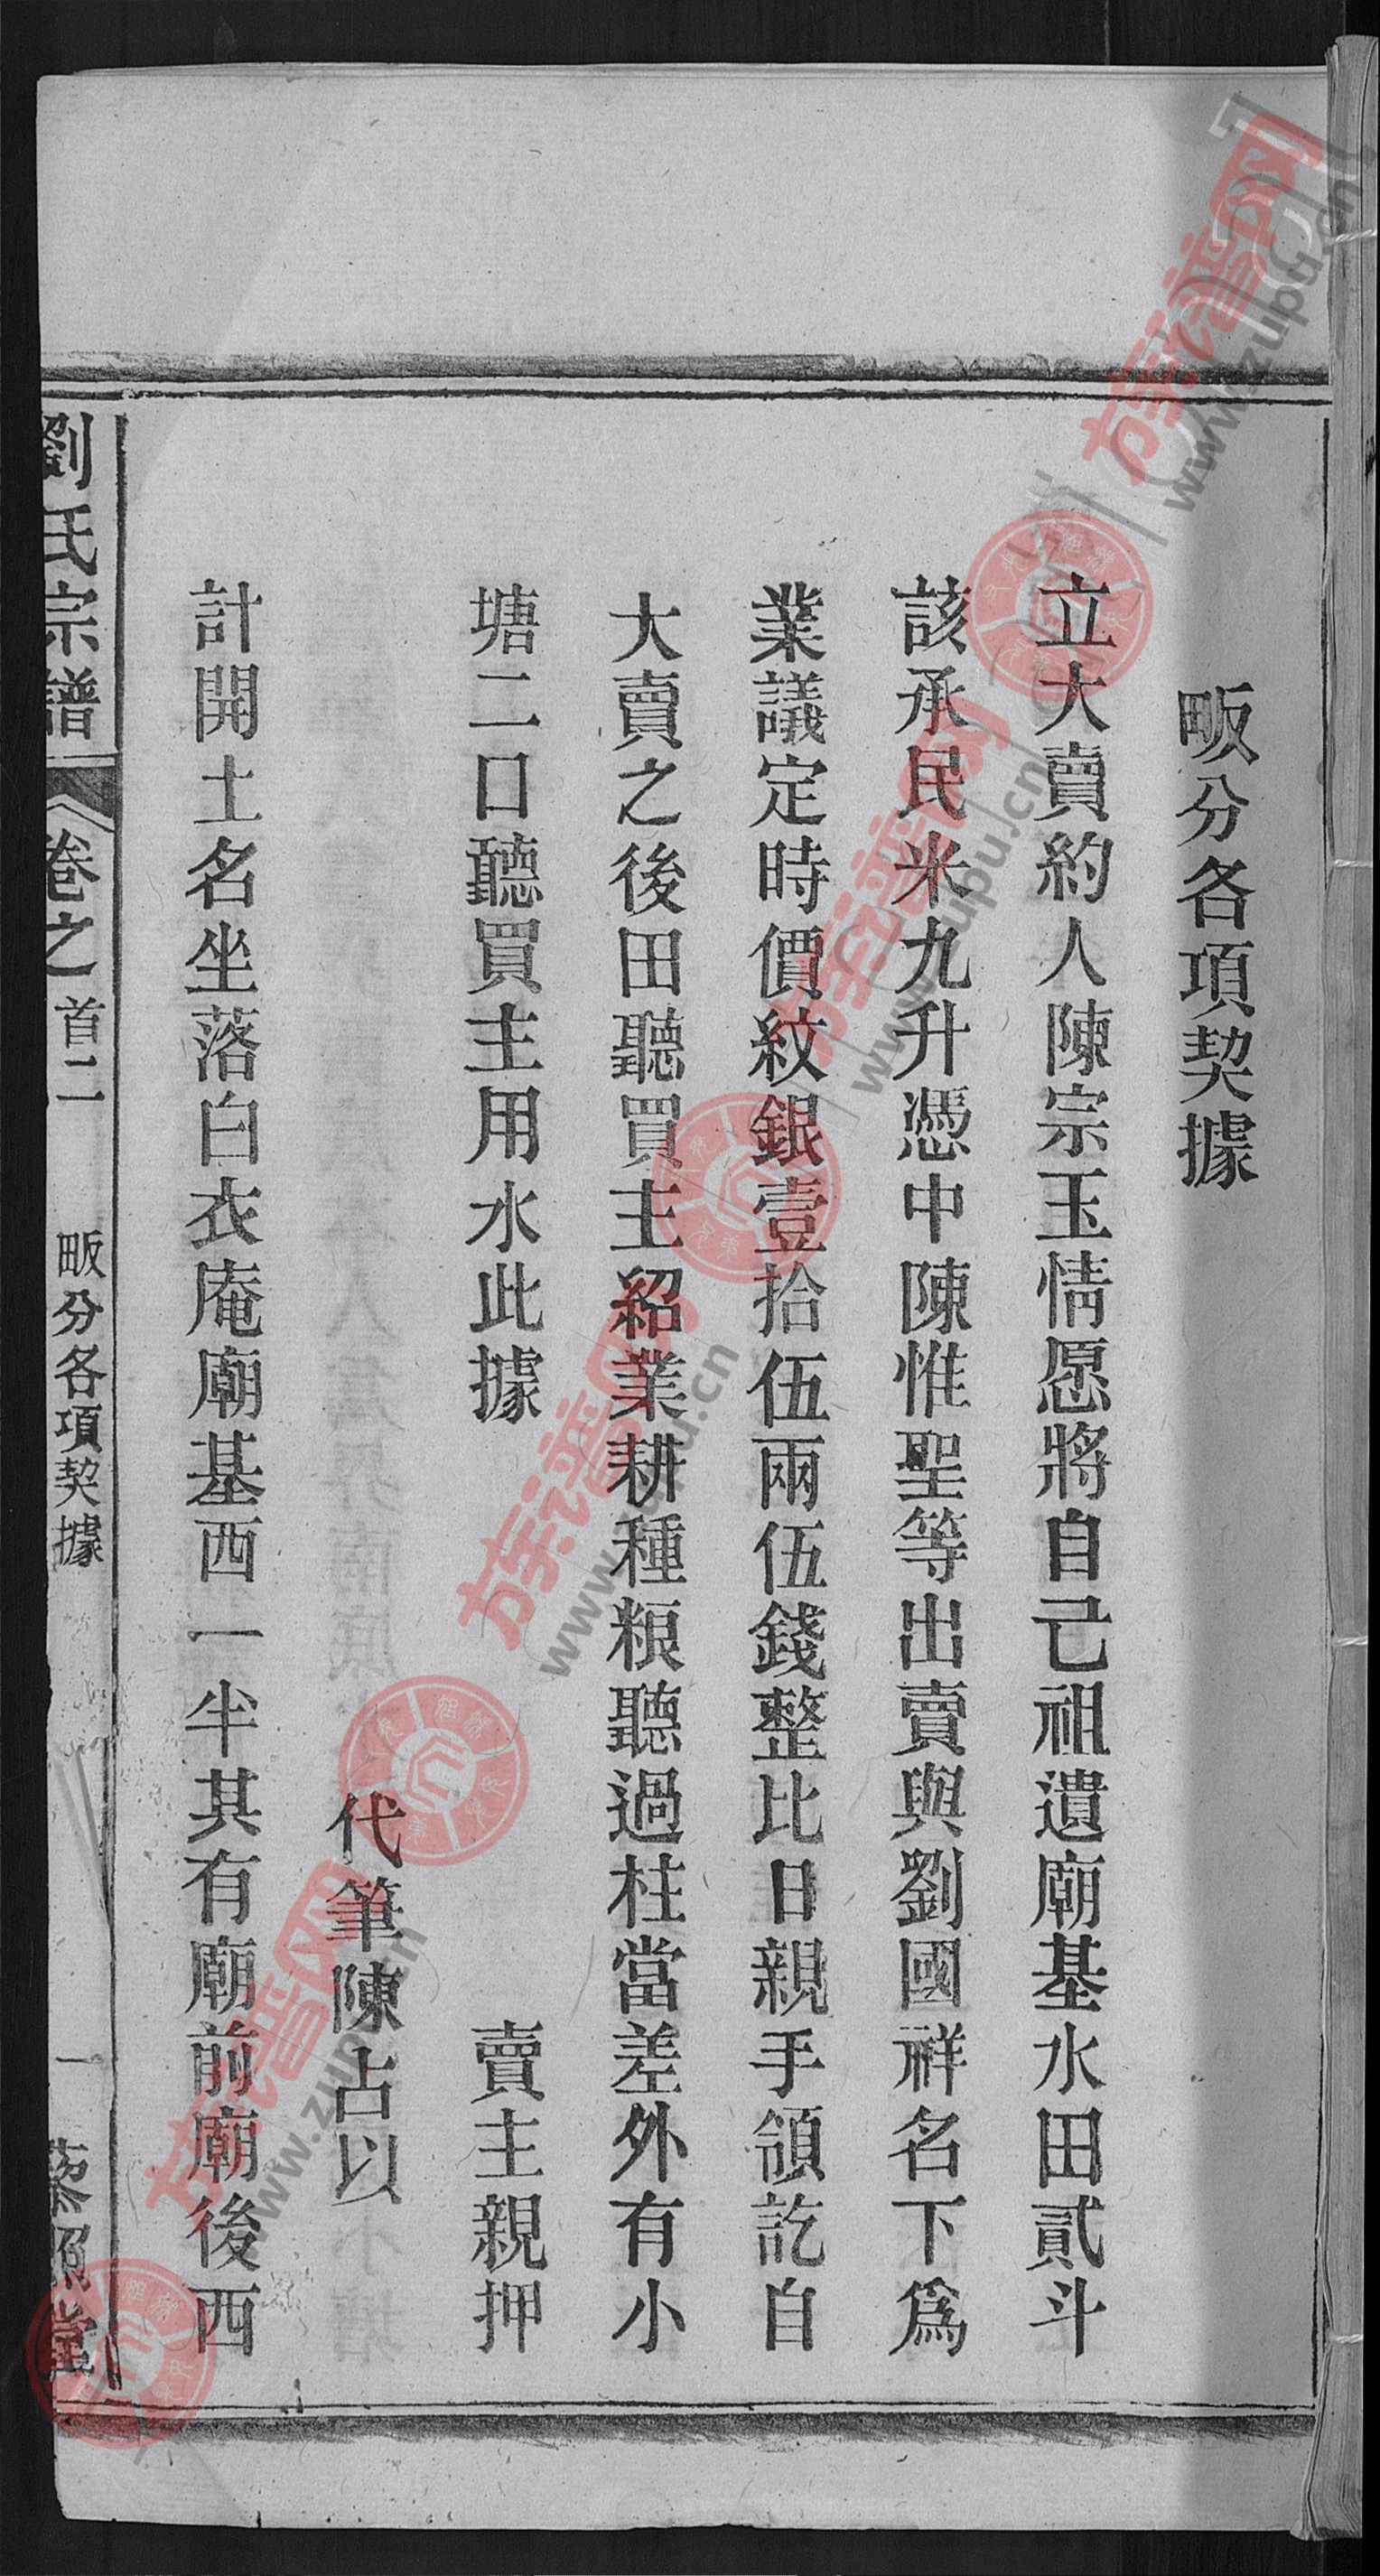 畈分各項契據
立大賣約人陳宗玉情愿將自己祖遺廟基水田貳斗
該承民米九升憑中陳惟聖等出賣與劉國祥名下爲
業議定時價紋銀壹拾伍兩伍錢整比日親手領訖自
大賣之後田聽買主紹業耕種粮聽過柱當差外有小
塘二口聽買主用水此據
賣主親押
代筆陳占以
計開土名坐落白衣庵廟基西一半其有廟前廟後西
劉氏宗譜
卷之首二
畈分各項契據
一
藜照堂
族谱网
www.zupu.cn
族谱网
www.zupu.cn
族谱网
www.zupu.cn
族谱网
www.zupu.cn